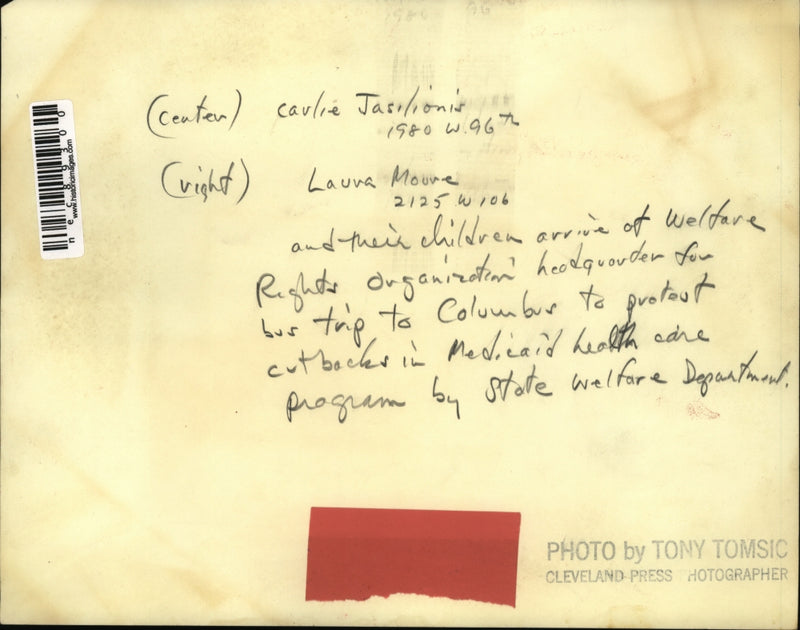 (center) Carlie Jasilionis
1980 W. 96th
(right) Laura Moore
2125 W 106
and their children arrive at Welfare
Rights Organization headquarter for
bus trip to Columbus to protest
cutbacks in Medicaid health care
program by State Welfare Department.
www.historicimages.com
nec89300
PHOTO by TONY TOMSIC
CLEVELAND PRESS HOTOGRAPHER